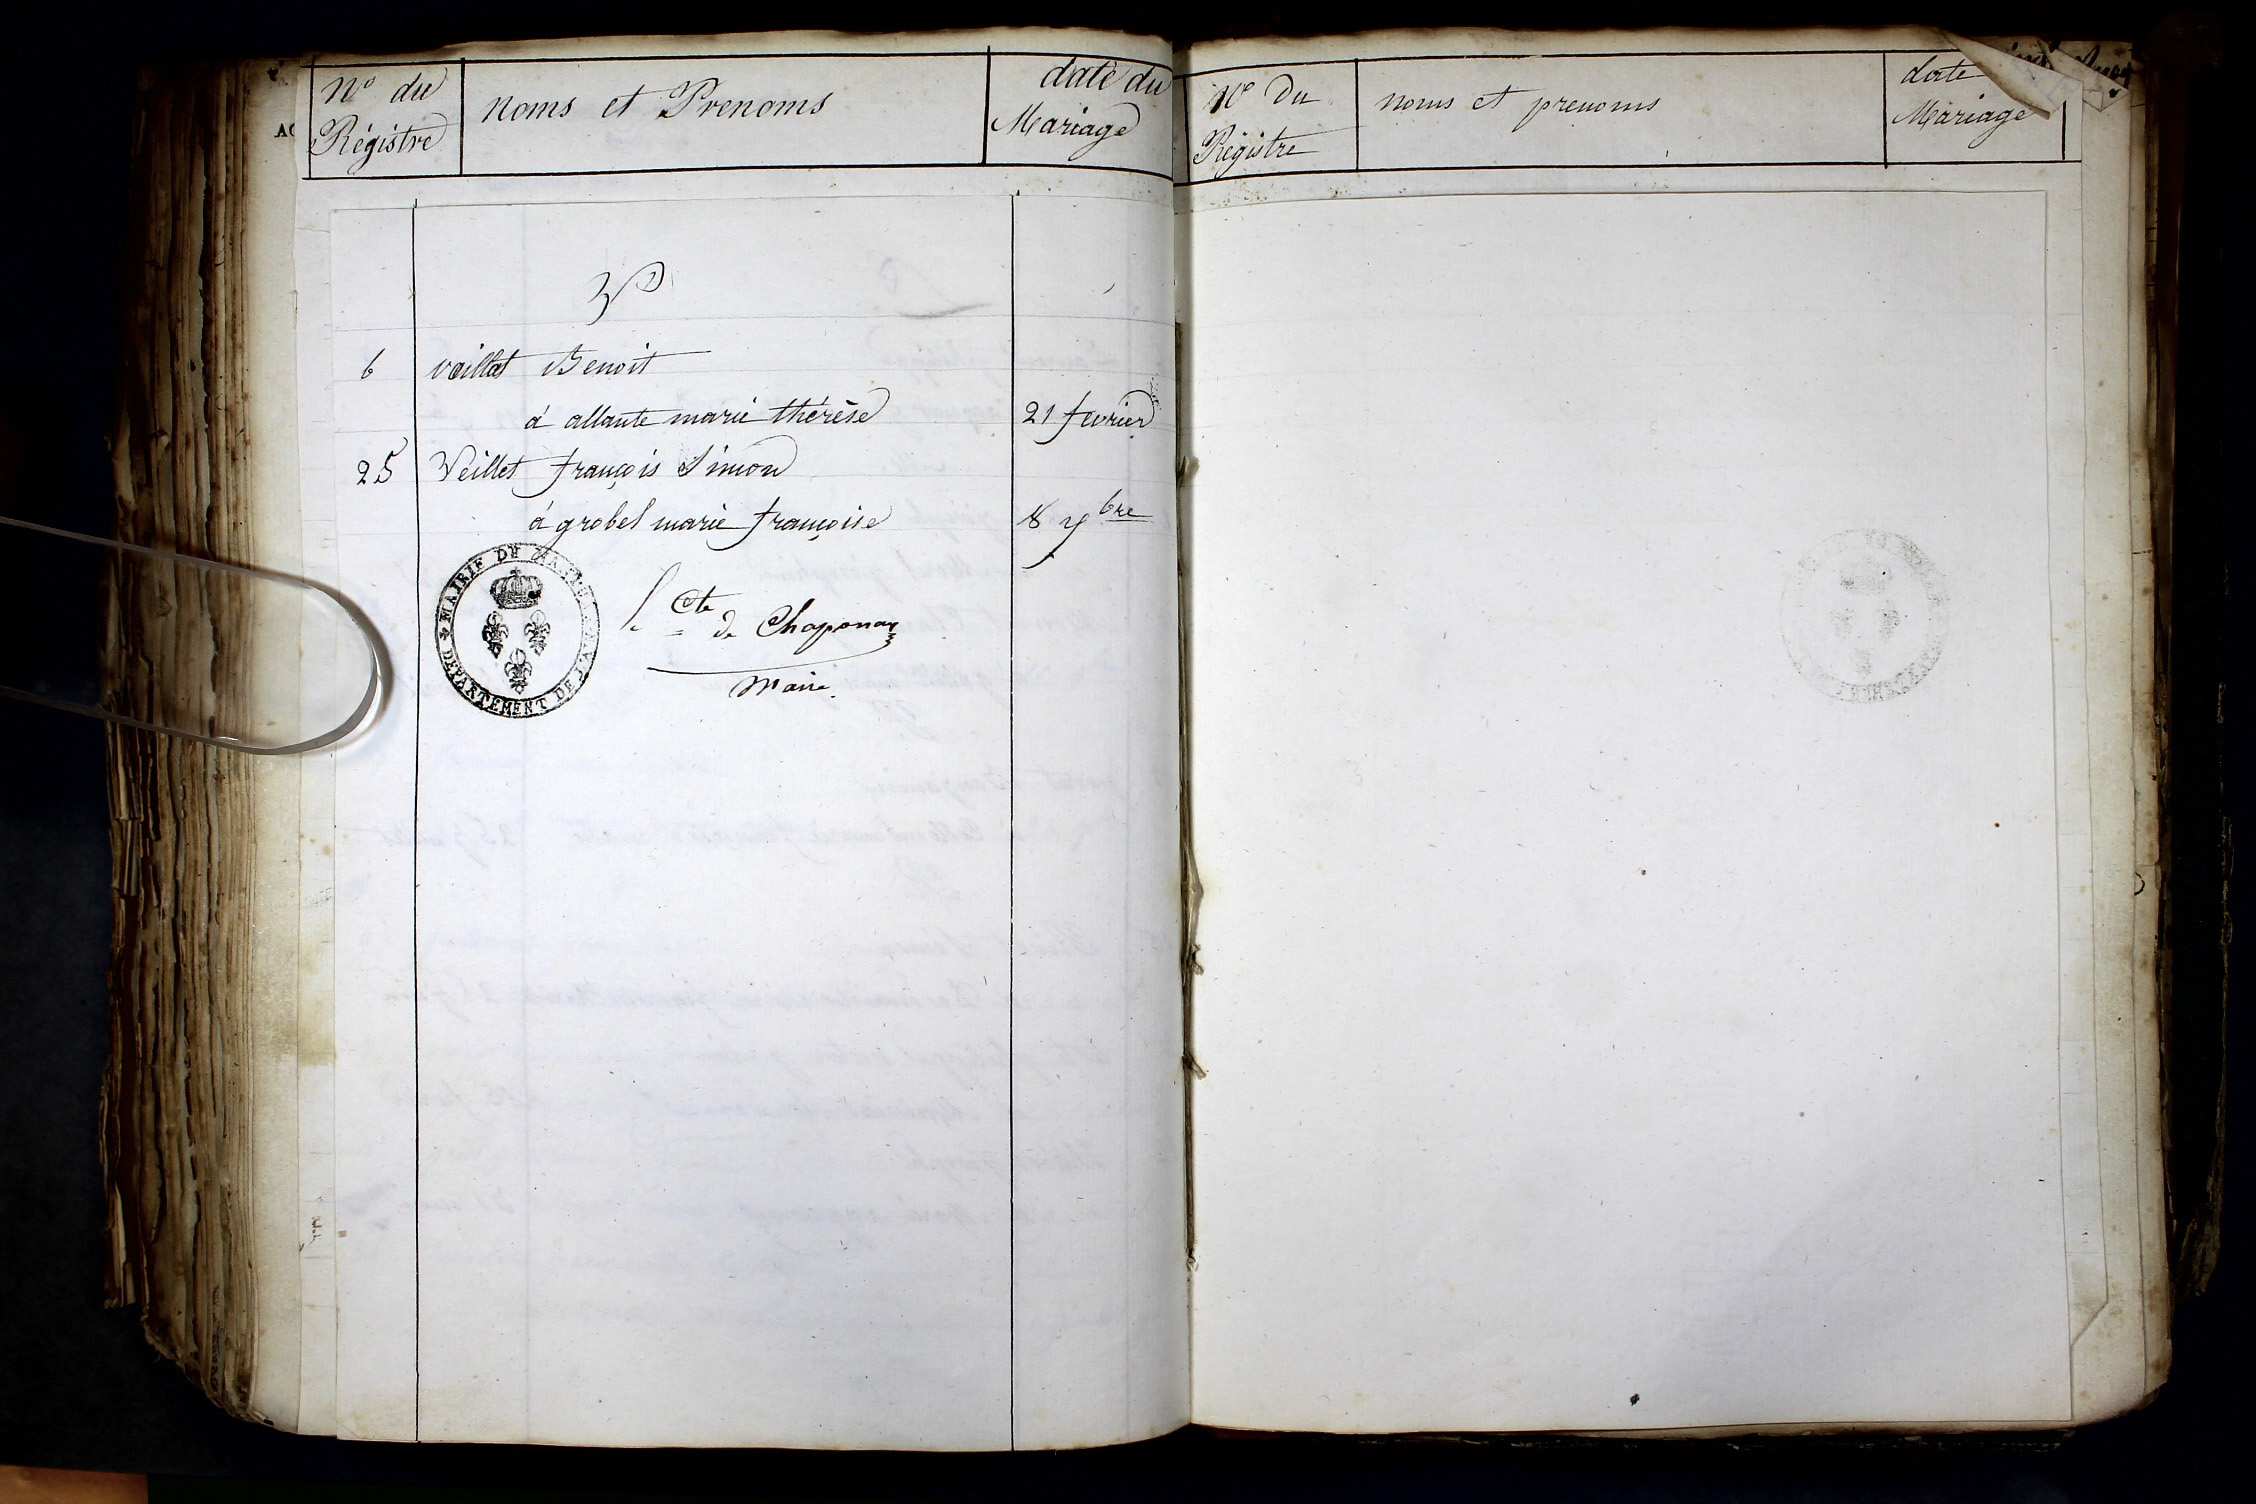 No du
Régistre
Noms et Prenoms
date du
Mariage
V
6 vaillat Benoit
à allante marie thérèse 21 fevrier
25 Veillet françois Simon
à grobel marie françoise 8 7bre
MAIRIE DU
DEPARTEMENT DE
le Cte de Chaponay
Maire.
No Du
Régistre
noms et prenoms
date
Mariage